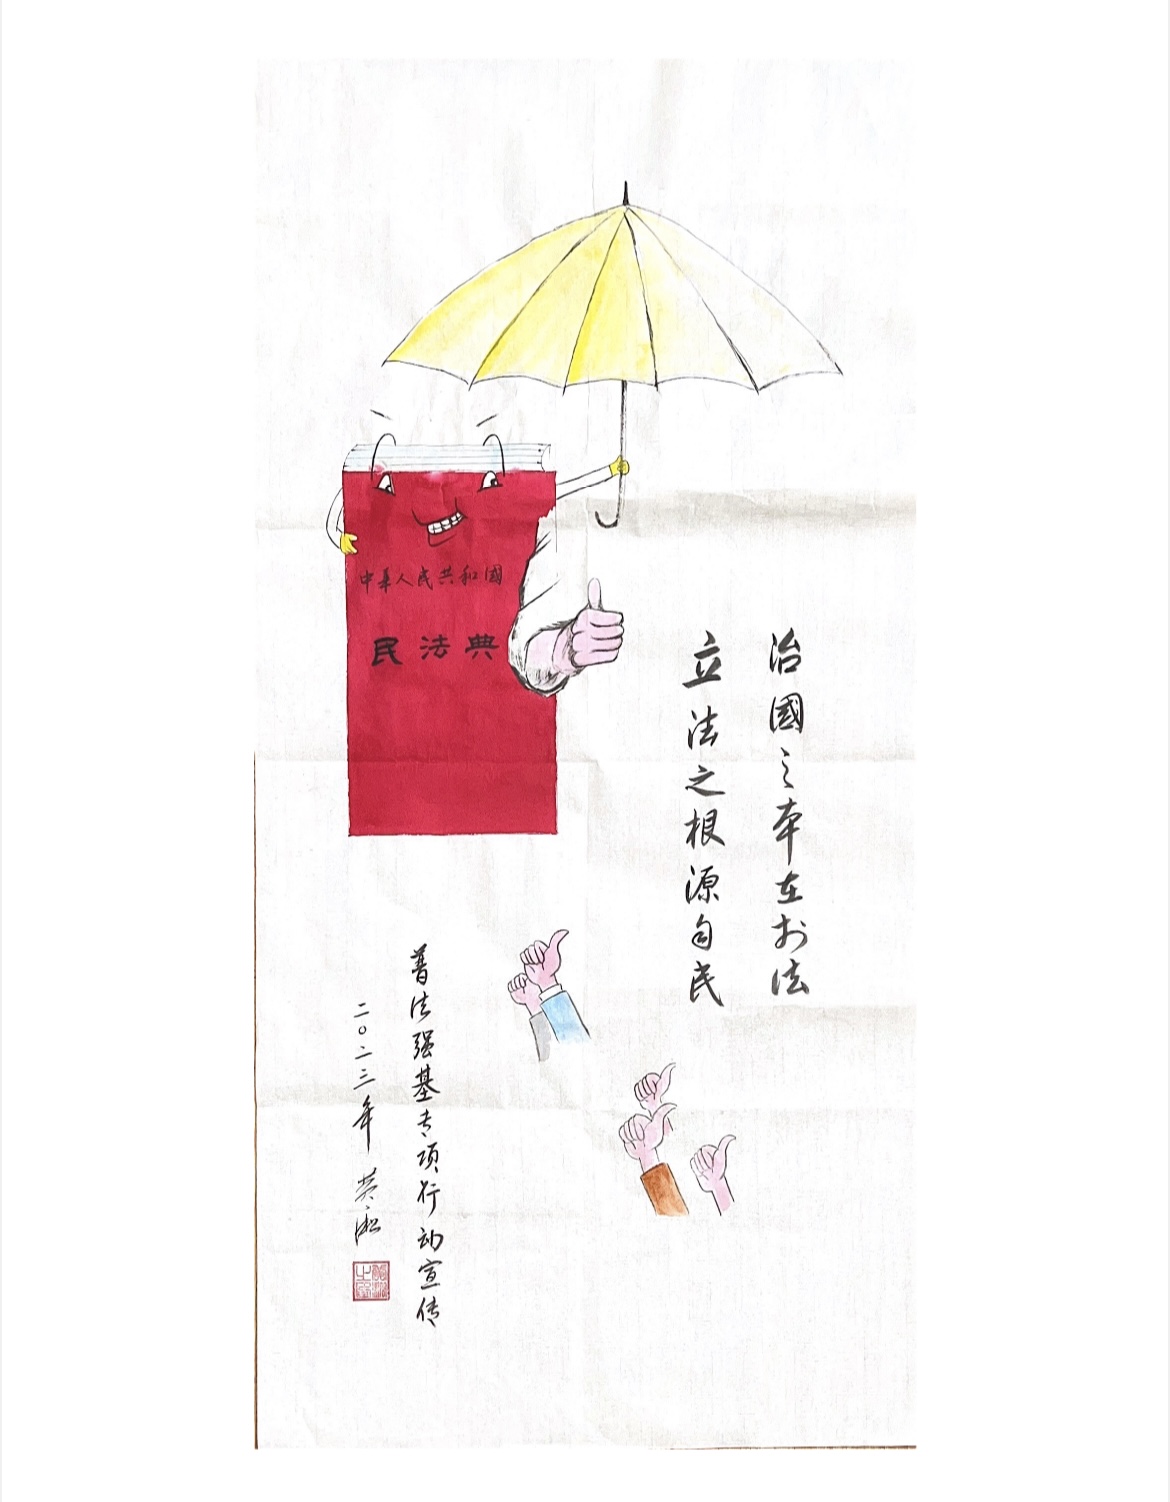 中華人民共和國
民法典
治國之本在於法
立法之根源自民
普法强基专项行动宣传
二〇二三年